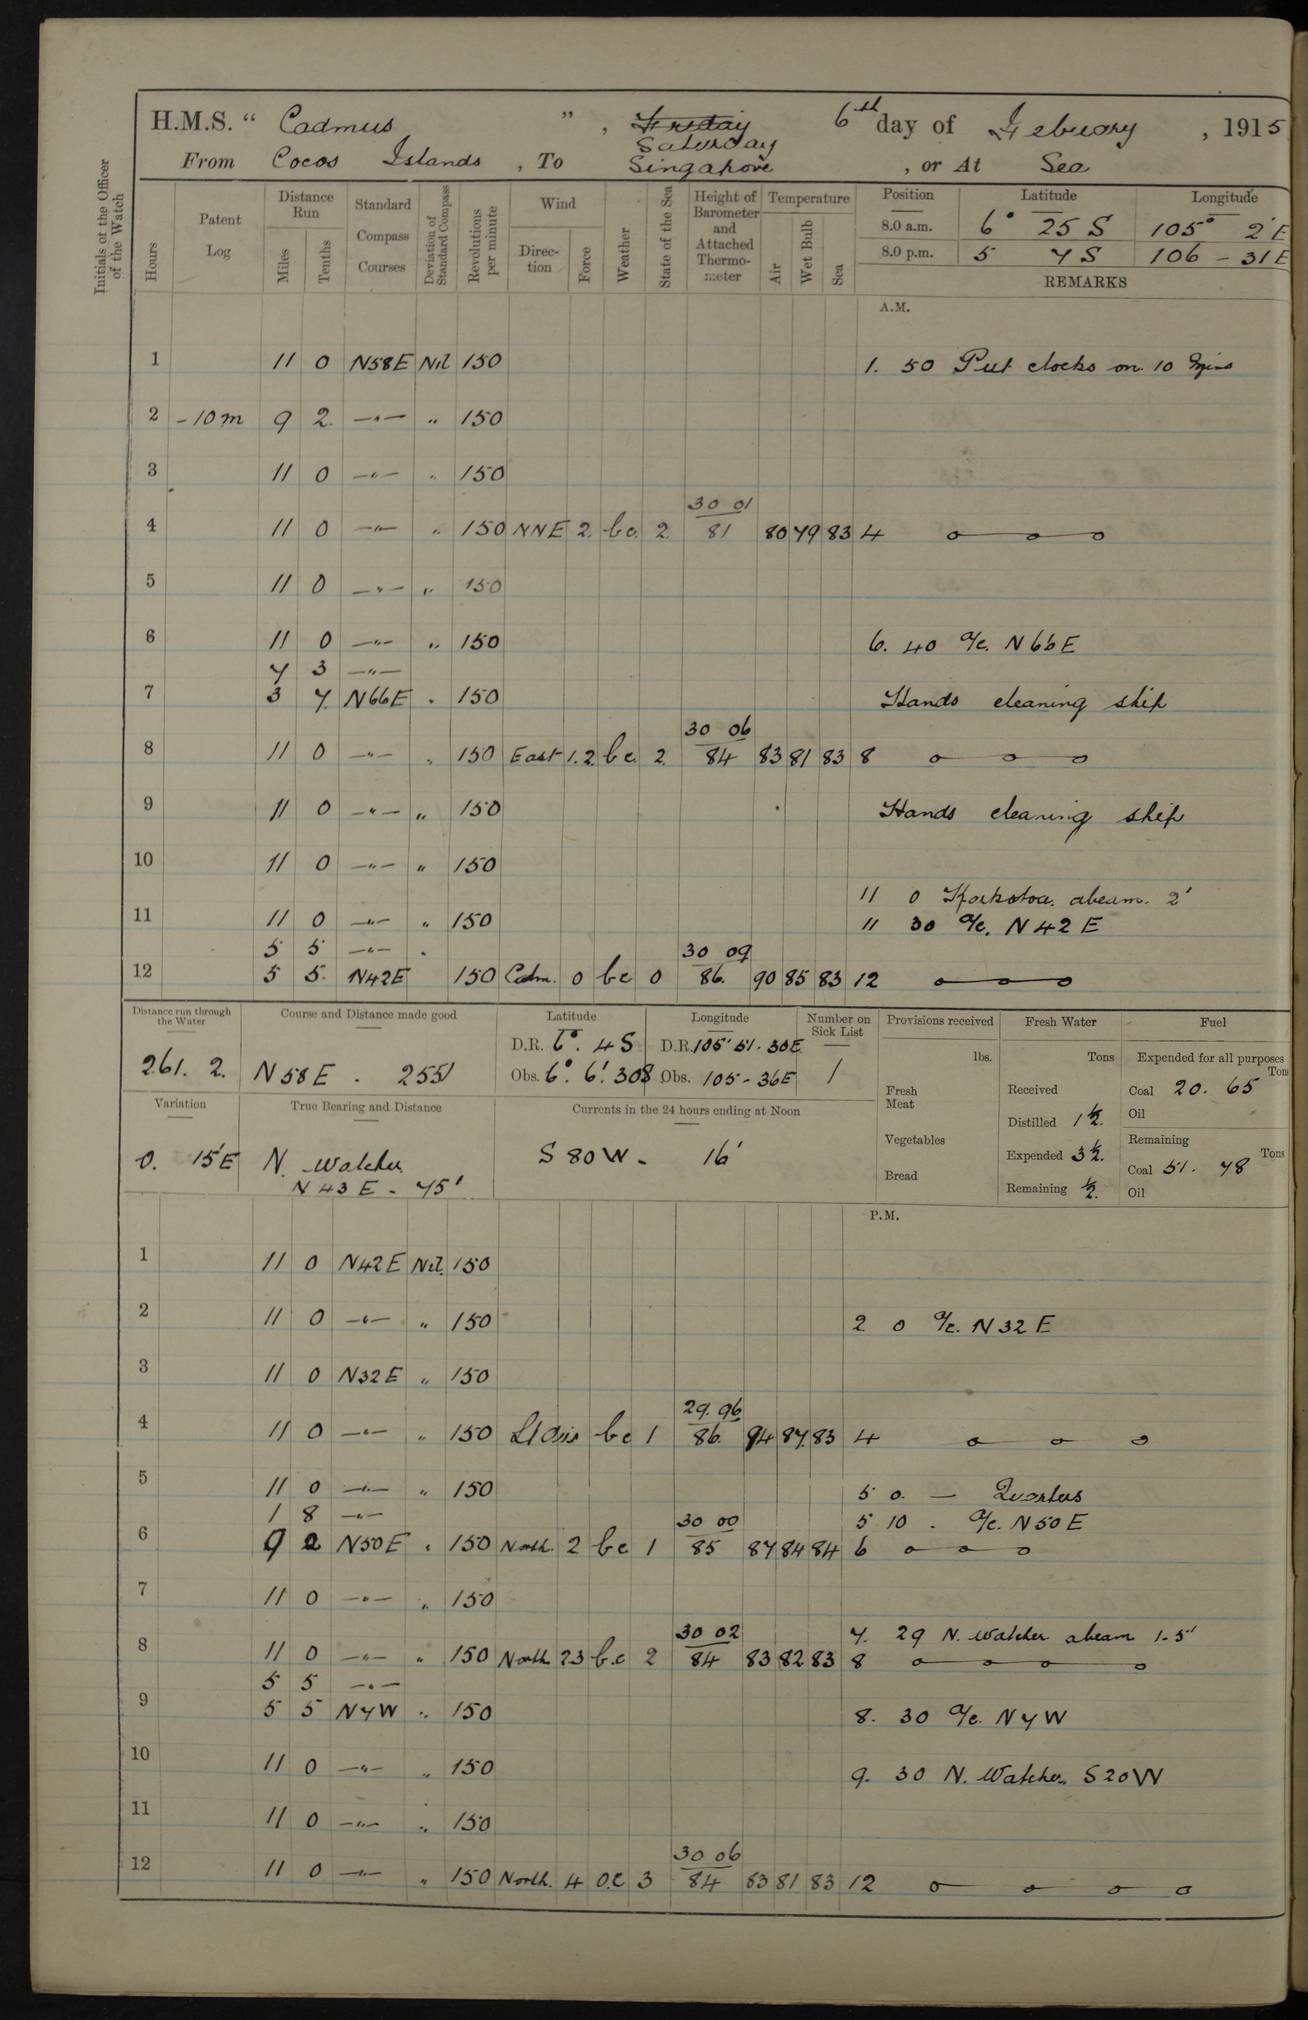 H.M.S. " Cadmus " , Friday 6th day of Febuary , 1915
Saturday
From Cocos Islands , To Singapore , or At Sea
Initials of the Officer of the Watch
Hours
Patent Log
Distance Run
Miles
Tenths
Standard Compass Courses
Deviation of Standard Compass
Revolutions per minute
Wind
Direction
Force
Weather
State of the Sea
Height of Barometer and Attached Thermometer
Temperature
Air
Wet Bulb
Sea
Position Latitude Longitude
8.0 a.m. 6° 25 S 105° 2' E
8.0 p.m. 5 7 S 106 - 31 E
REMARKS
A.M.
1 11 0 N58E Nil 150 1. 50 Put clocks on 10 Mins
2 -10m 9 2. —"— " 150
3 11 0 —"— " 150
30 01
4 11 0 —"— " 150 NNE 2. bc. 2 81 80 79 83 4 o—o—o
5 11 0 —"— " 150
6 11 0 —"— " 150 6. 40 a/c. N66E
7 3 —"—
7 3 7. N66E " 150 Hands cleaning ship
30 06
8 11 0 —"— " 150 East 1.2 bc. 2. 84 83 81 83 8 o—o—o
9 11 0 —"— " 150 Hands cleaning ship
10 11 0 —"— " 150
11 0 Krakatoa. abeam. 2'
11 11 0 —"— " 150 11 30 a/c. N42E
5 5 —"— "
30 09
12 5 5. N42E 150 Calm. 0 bc 0 86. 90 85 83 12 o—o—o
Distance run through the Water
261. 2.
Course and Distance made good
N58E . 255'
Latitude
D.R. 6°. 4 S
Obs. 6°. 6'. 30 S
Longitude
D.R. 105° 51. 30E
Obs. 105 - 36E
Number on Sick List
1
Provisions received
lbs.
Fresh Meat
Vegetables
Bread
Fresh Water
Tons
Received
Distilled 1½.
Expended 3½.
Remaining ½.
Fuel
Expended for all purposes
Tons
Coal 20. 65
Oil
Remaining
Tons
Coal 51. 78
Oil
Variation
0. 15'E
True Bearing and Distance
N. Watcher
N 43 E - 75'
Currents in the 24 hours ending at Noon
S 80 W - 16'
P.M.
1 11 0 N42E Nil. 150
2 11 0 —"— " 150 2 0 a/c. N32E
3 11 0 N32E " 150
29. 96
4 11 0 —"— " 150 Lt airs bc 1 86. 94 87. 83 4 o—o—o
5 11 0 —"— " 150 5 0. — Quarters
1 8 —"— 5 10 . a/c. N50E
30 00
6 9 2 N50E " 150 North. 2 bc 1 85 87 84 84 6 o—o—o
7 11 0 —"— " 150
30 02 7. 29 N. Watcher abeam 1-5'
8 11 0 —"— " 150 North 2.3 b.c 2 84 83 82 83 8 o—o—o—o
5 5 —"—
9 5 5 N7W " 150 8. 30 a/c. N7W
10 11 0 —"— " 150 9. 30 N. Watcher S20W
11 11 0 —"— " 150
30 06
12 11 0 —"— " 150 North. 4 o.c 3 84 83 81 83 12 o—o—o—o